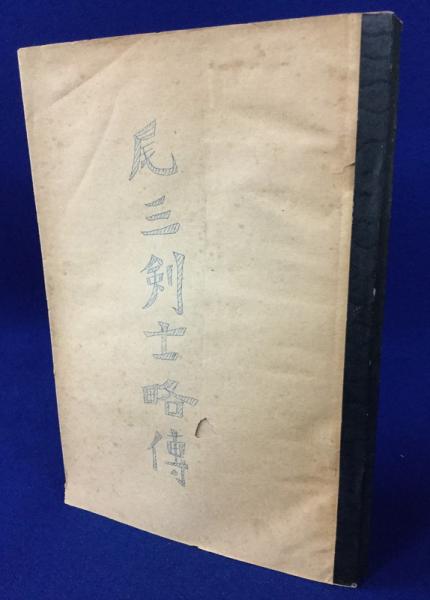 尾三剣士略傳